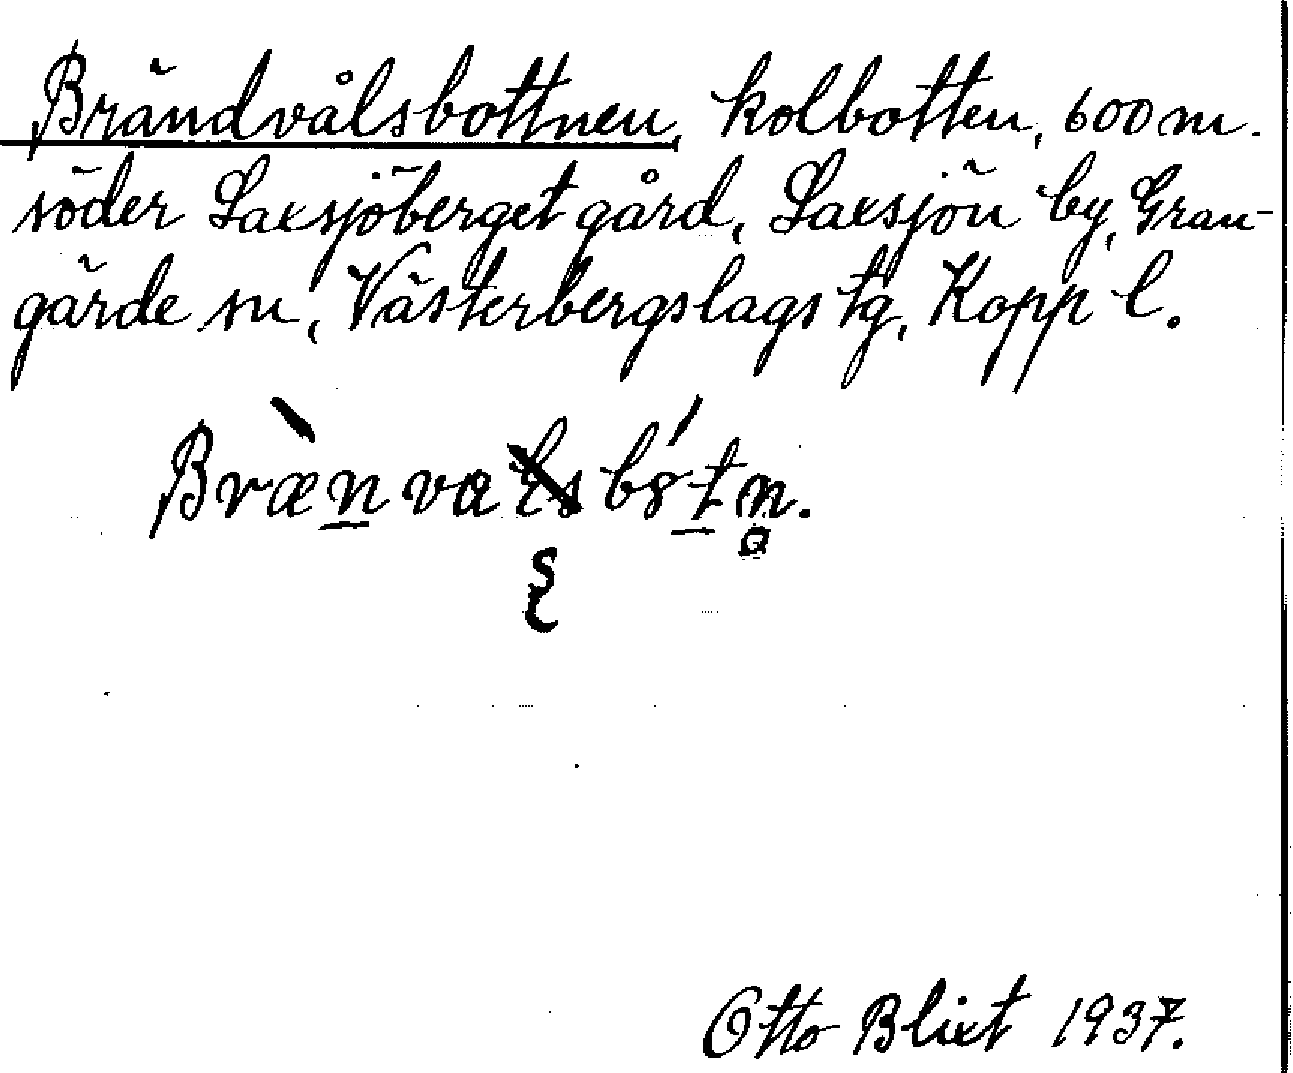 Brändvålsbottnen, kolbotten, 600 m.
söder Laxsjöberget gård, Laxsjön by, Gran-
gärde sn, Västerbergslags tg, Kopp l.
Otto Blixt 1937.